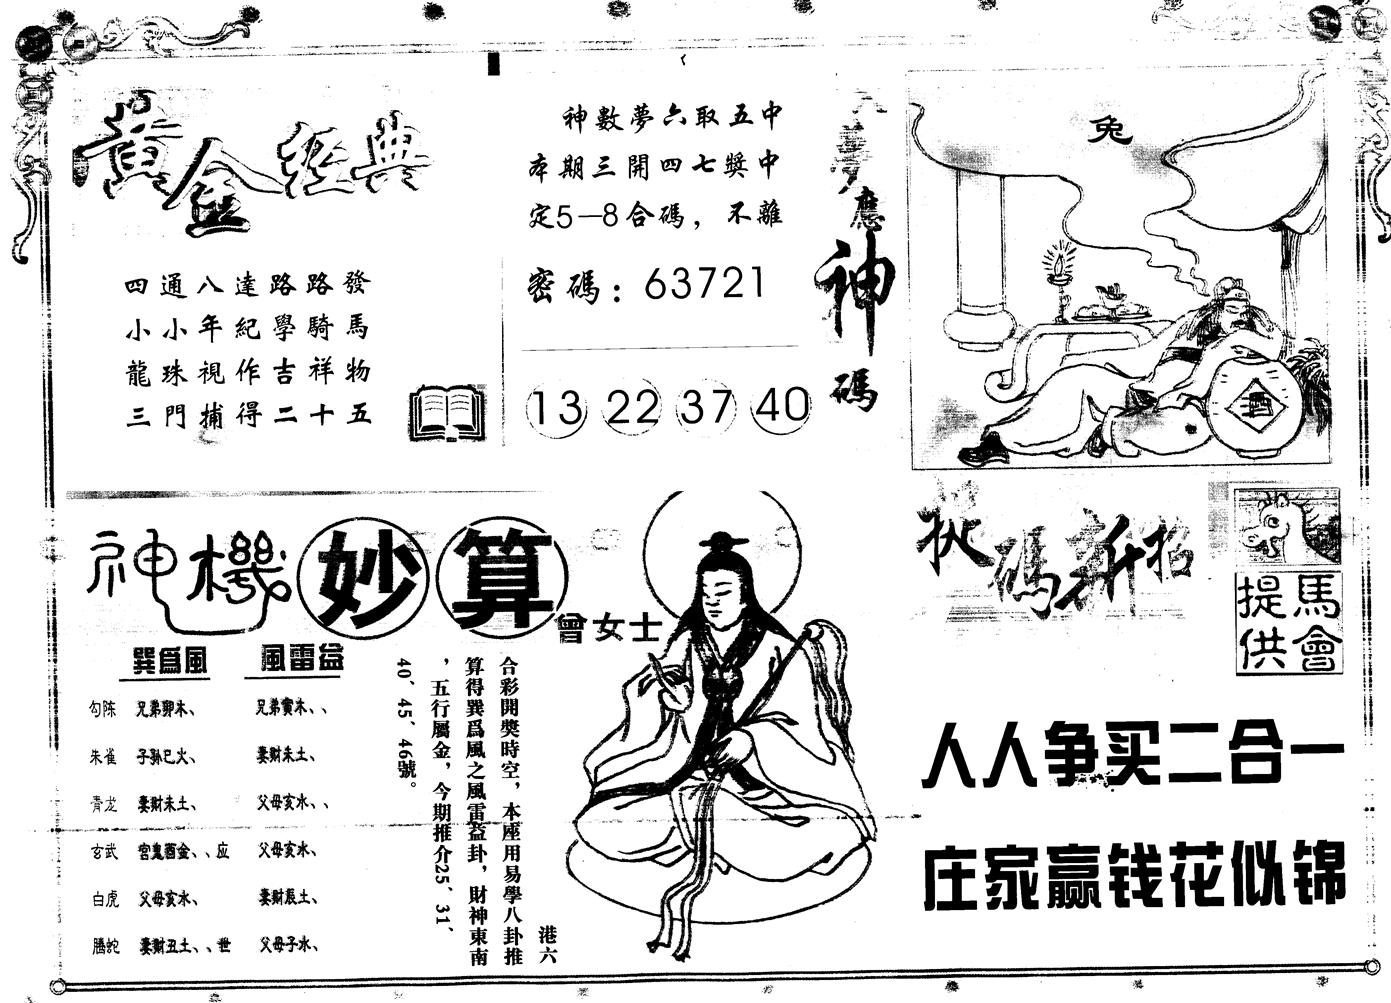 黃金經典
四通八達路路發
小小年紀學騎馬
龍珠視作吉祥物
三門捕得二十五
神數夢六取五中
本期三開四七獎中
定5—8合碼，不離
密碼：63721
13 22 37 40
夢應神碼
兔
酒
神機妙算
曾女士
巽爲風 風雷益
勾陈 兄弟卯木、 兄弟寅木、、
朱雀 子孙巳火、 妻財未土、
青龙 妻財未土、 父母亥水、、
玄武 官鬼酉金、、应 父母亥水、
白虎 父母亥水、 妻財辰土、
螣蛇 妻財丑土、、世 父母子水、
港六
合彩開獎時空，本座用易學八卦推
算得巽爲風之風雷益卦，財神東南
，五行屬金，今期推介25、31、
40、45、46號。
碼新招
馬會
提供
人人争买二合一
庄家赢钱花似锦